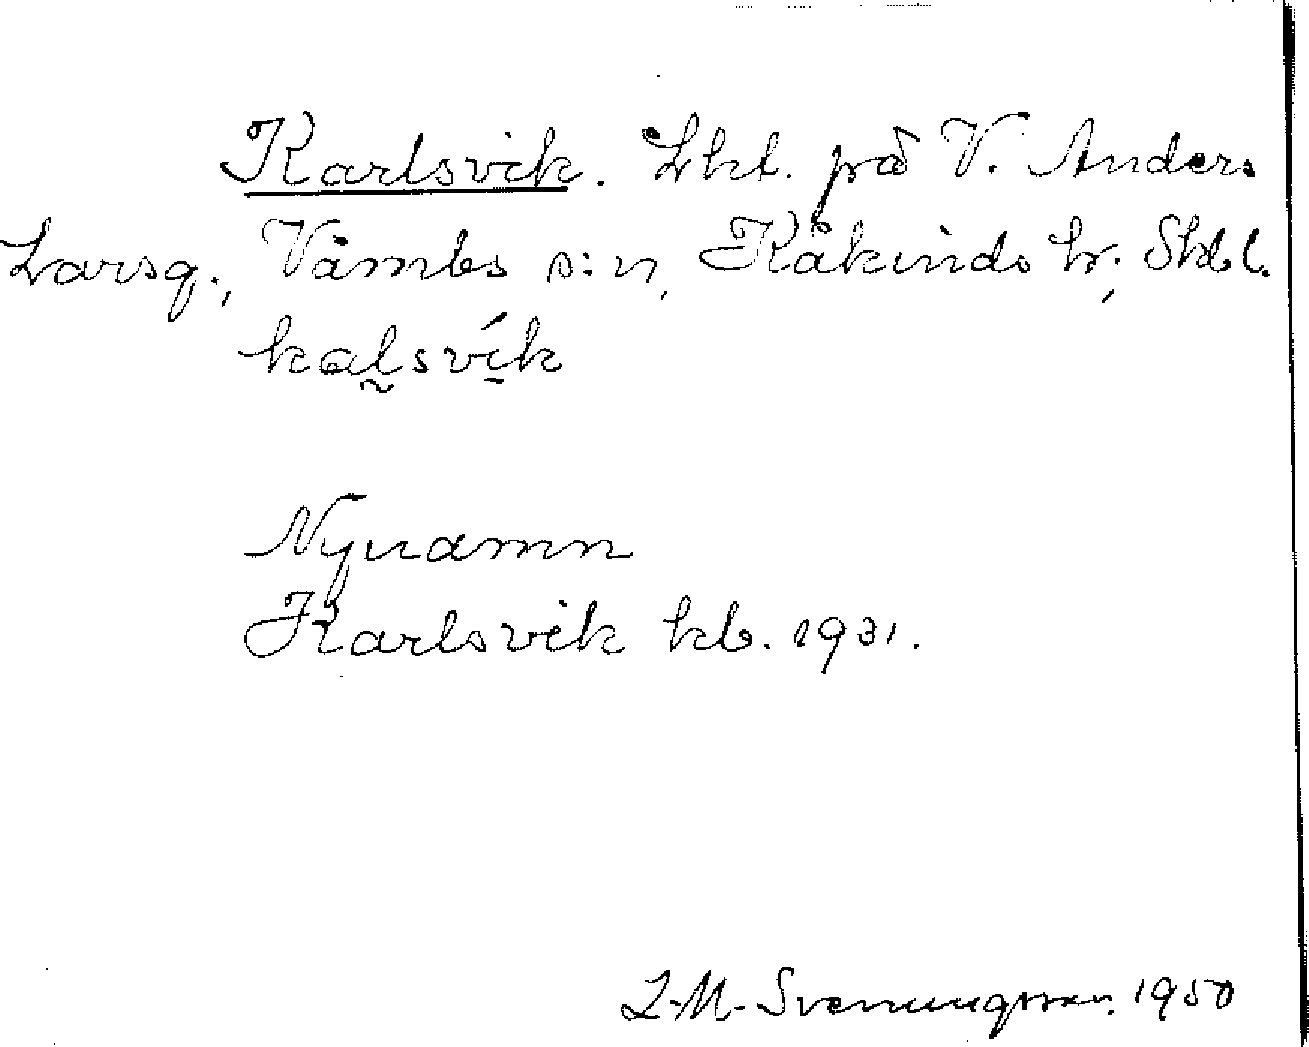 Karlsvik. Lht. på V. Anders
Larsg., Våmbs s:n, Kåkinds hr, Skbl.
kalsvik
Nynamn
Karlsvik kb. 1931.
L-M- Svenungsson. 1950